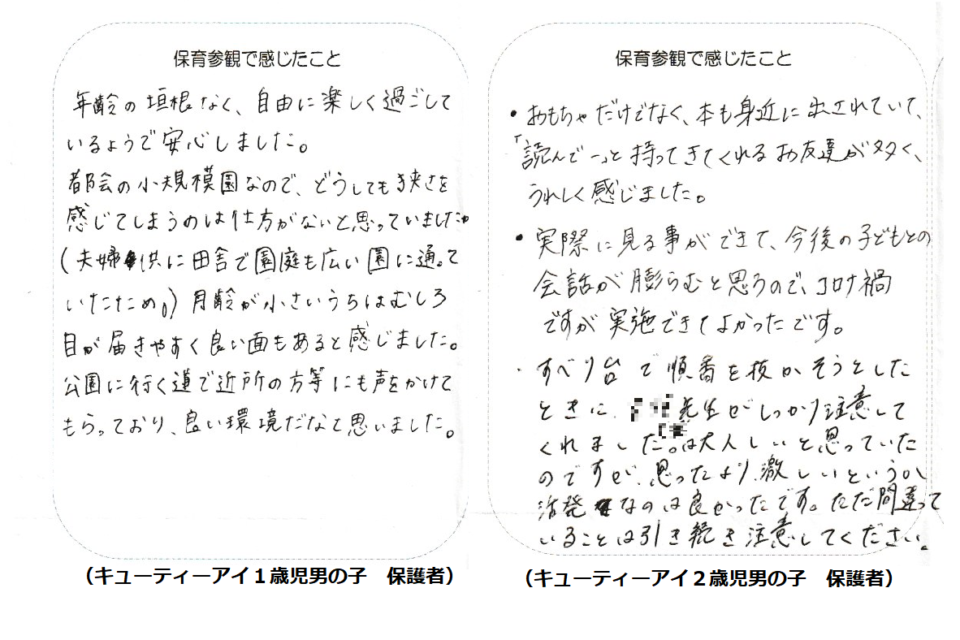 保育参観で感じたこと
年齢の垣根なく、自由に楽しく過ごして
いるようで安心しました。
都会の小規模園なので、どうしても狭さを
感じてしまうのは仕方がないと思っていましたが
(夫婦共に田舎で園庭も広い園に通って
いたため。)月齢が小さいうちはむしろ
目が届きやすく良い面もあると感じました。
公園に行く道で近所の方等にも声をかけて
もらっており、良い環境だなと思いました。
(キューティーアイ1歳児男の子 保護者)
保育参観で感じたこと
・おもちゃだけでなく、本も身近に出されていて、
「読んでー」と持ってきてくれるお友達が多く、
うれしく感じました。
・実際に見る事ができて、今後の子どもとの
会話が膨らむと思うので、コロナ禍
ですが実施できてよかったです。
・すべり台で順番を抜かそうとした
ときに、先生がしっかり注意して
くれました。は大人しいと思っていた
のですが、思ったより激しいというか
活発なのは良かったです。ただ間違って
いることは引き続き注意してください。
(キューティーアイ2歳児男の子 保護者)